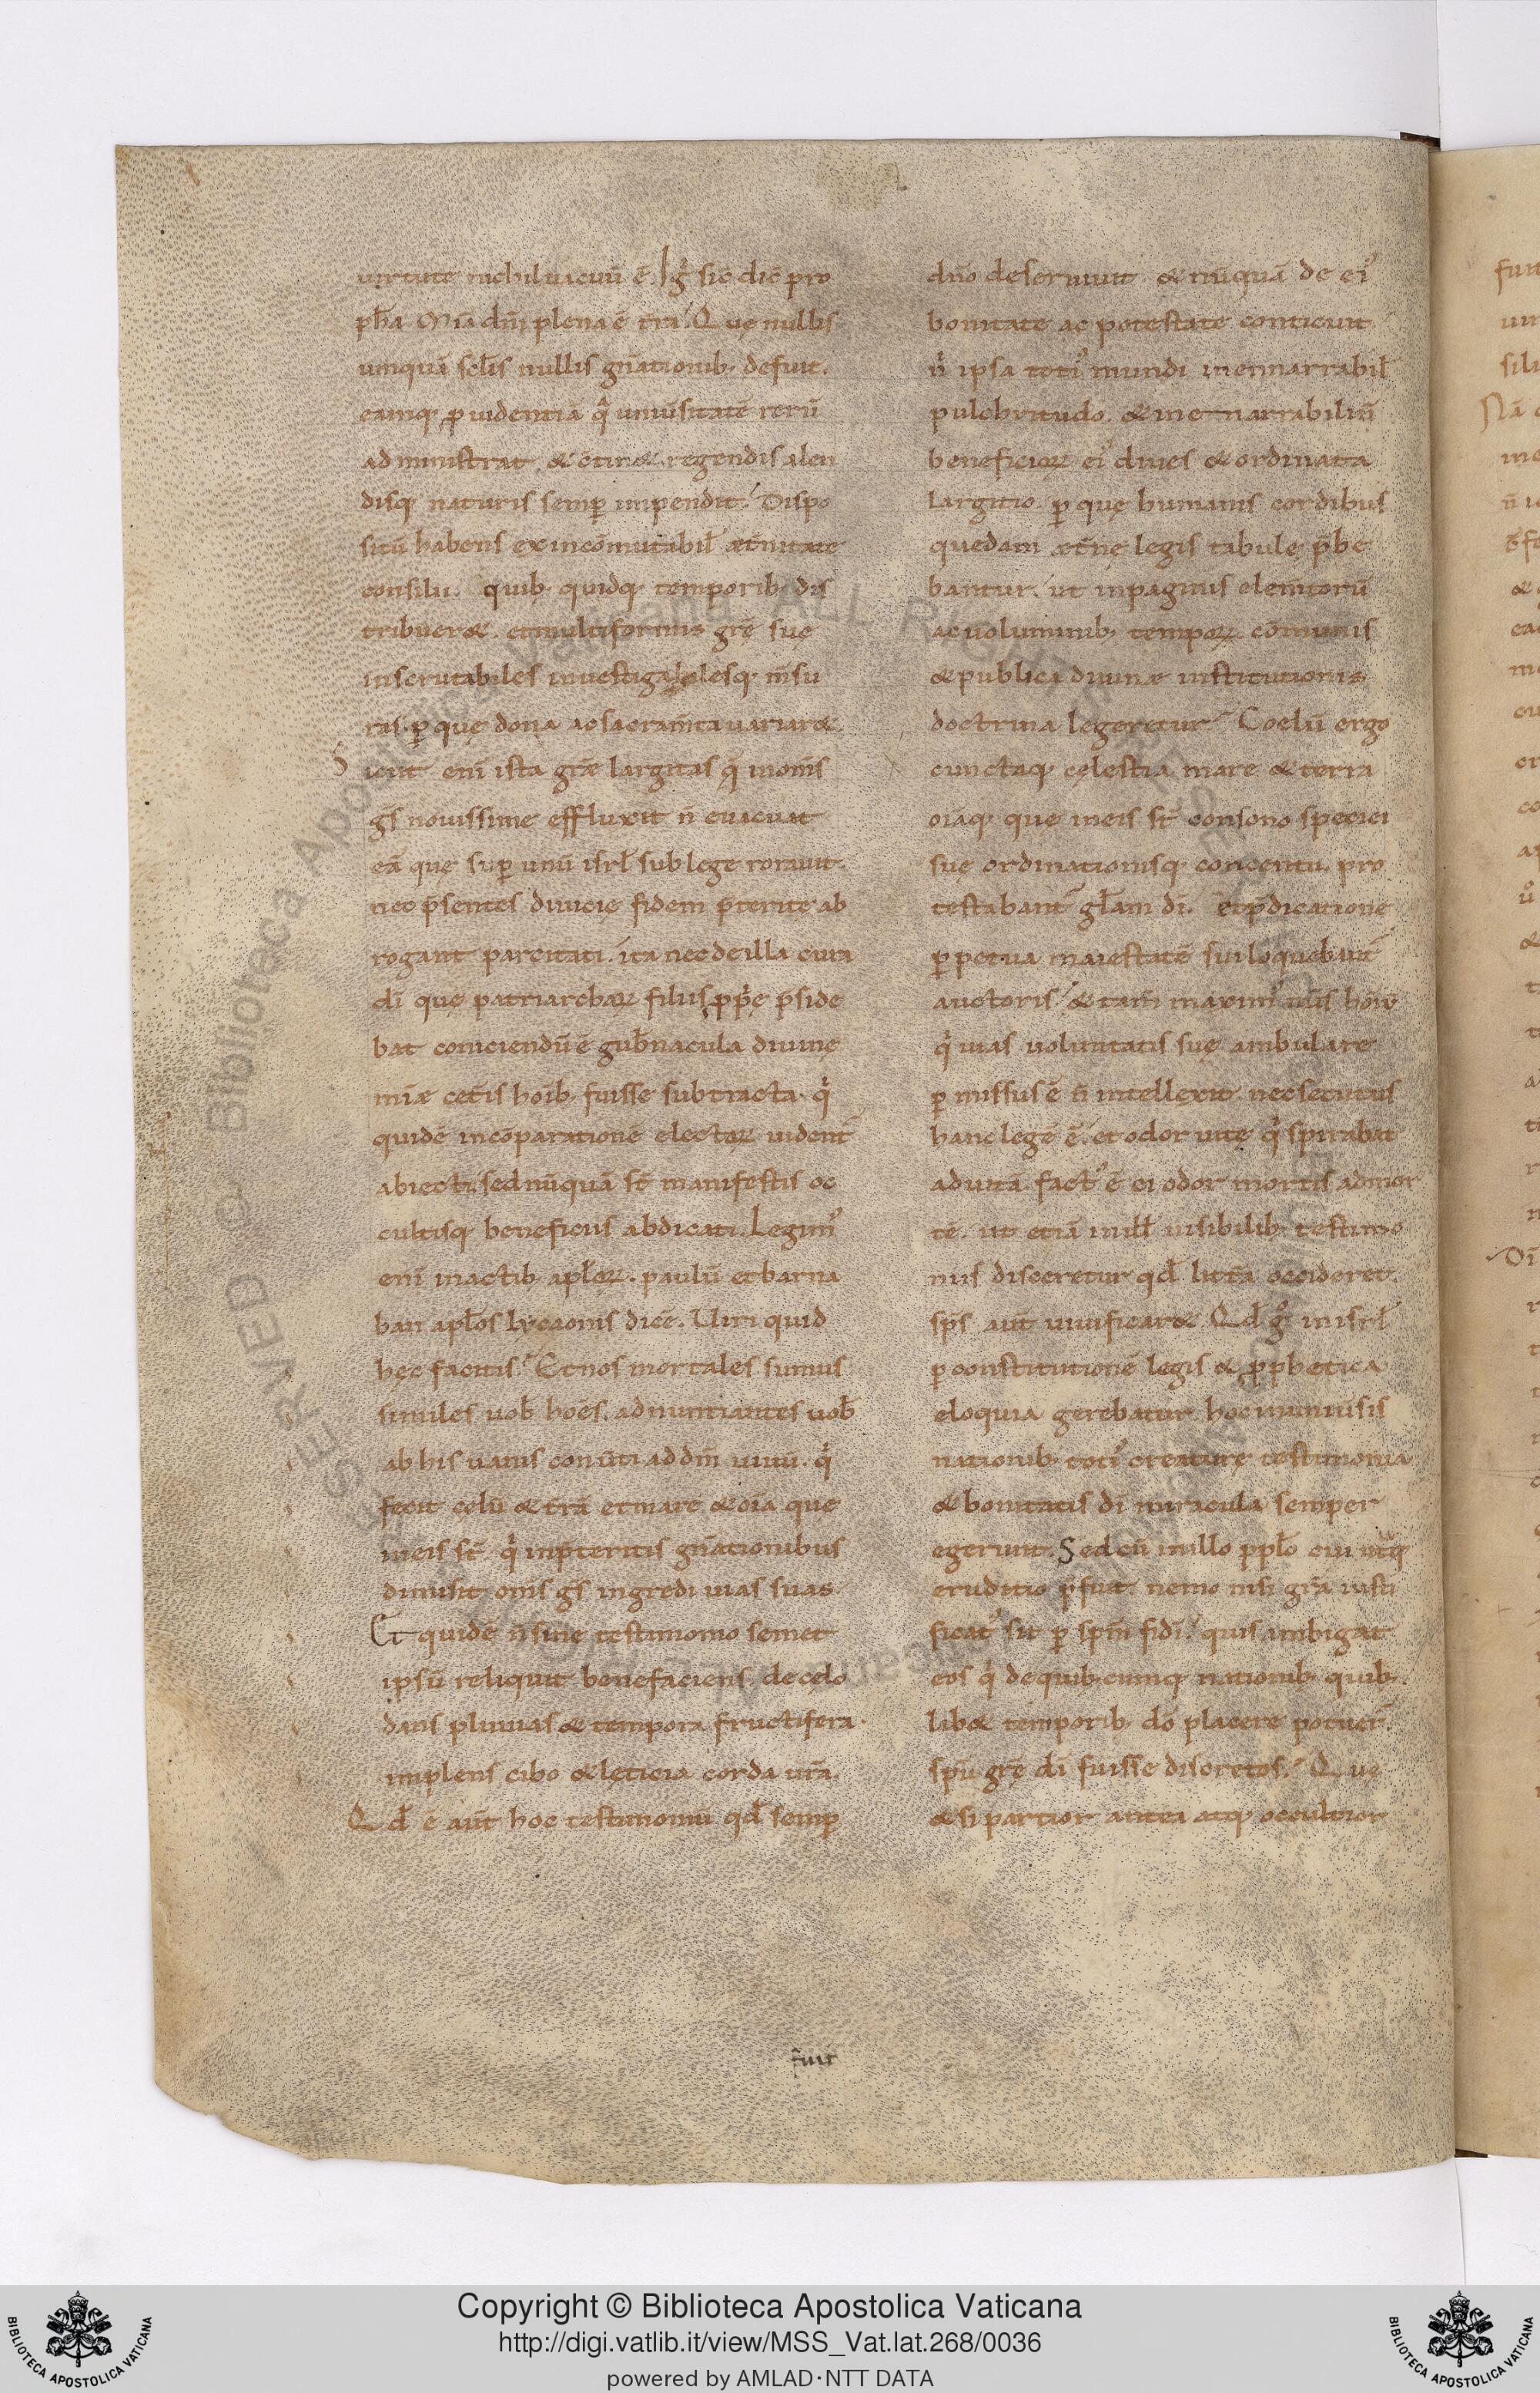 uirtute nichil uacuũ ẽ. Igͥ sic̃ dic̃ pro
ph̃a Mia dñi plena ẽ tr̃a. Quę nullis
umquã sc̃lis nullis gñationib; defuit.
eamq; ꝓuidentiã qͣ uniũsitatẽ rerũ
administrat & c̃tin& regendis alen
disq; naturis semꝑ impendit. Dispo
sitũ habens ex incõmutabil̃ æt̃nitate
consilii. quib; quidq; temporib; dis
tribuer&. et multiformis grę̃ suę
inscrutabiles inuestigabilesq; m̃su
ras. ꝑ quę dona ac sacram̃ta uariar&.
Sicut eni ista grã largitas q̃ in om̃s
gs̃ nouissime effluxit ñ euacuat
eã quę suꝑ unũ isrl̃ sub lege rorauit.
nec p̃sentes diuicie fidem p̃terite ab
rogant parcitati. ita nec de illa cura
di que patriarchaꝝ filiis ꝓpͥę p̃side
bat coniciendũ ẽ gub̃nacula diuinę
miæ cet̃is hoib; fuisse subtracta. qͥ
quidẽ in cõparationẽ electoꝝ uident̃
abiecti. sed nũquã st̃ manifestis oc
cultisq; beneficiis abdicati. Legim᷒
eni in actib; apl̃oꝝ. paulũ et barna
ban apl̃os lycaonis dicẽ. Uiri quid
hęc facitis. Et nos mortales sumus
similes uob̃ hoẽs. adnuntiantes uob̃
ab his uanis conũti ad dm̃ uiuũ. qͥ
fecit celũ & tr̃ã et mare & oia que
in eis st̃ qͥ in p̃teritis gñationibus
dimisit om̃s gs̃ ingredi uias suas
Et quidẽ ñ sine testimonio semet
ipsũ reliquit benefaciens. de cęlo
dans pluuias & tempora fructifera.
implens cibo & lęticia corda ur̃a.
Qd̃ ẽ aut̃ hoc testimoniũ qd̃ semꝑ
dño deseruiuit & nũquã de ei᷒
bonitate ac potestate conticuit
ñ ipsa toti᷒ mundi inennarrabil̃
pulchritudo. & inenarrabiliũ
beneficioꝝ ei᷒ diues & ordinata
largitio. ꝑ quę humanis cordibus
quedam æt̃nę legis tabulę p̃be
bantur. ut in paginis elem̃torũ
ac uoluminib; tempoꝝ. cõmunis
& publica diuinæ institutionis
doctrina legeretur. Coelũ ergo
cunctaq; cęlestia mare & terra
oiaq; que in eis st̃ consono speciei
suę ordinationisq; concentu. pro
testabant̃ gl̃am di. et p̃dicatione
ꝑpetua maiestatẽ sui loquebant̃
auctoris. & tam̃ maxim᷒ nũs hoiũ
qͥ uias uoluntatis suę ambulare
ꝑmissus ẽ ñ intellexit. nec secutus
hanc legẽ ẽ. et odor uitę qͥ spirabat
ad uitã. fact᷒ ẽ ei odor mortis ad mor
tẽ. ut etiã in ill̃ uisibilib; testimo
niis disceretur qd̃ litt̃a occideret.
sp̃s aut̃ uiuificar&. Qd̃ gͦ in isrl̃
ꝑ constitutionẽ legis & ꝓphetica
eloquia gerebatur. hoc in uniũsis
nationib; toti᷒ creature testimonia
& bonitatis di miracula semper
egerunt. Sed cũ in illo ppl̃o cui utq̃
eruditio p̃fuit. nemo nisi gr̃a iusti
ficat᷒ sit ꝑ spm̃ fidi. quis ambigat
eos qͥ de quib;cumq; nationib; quib;
lib& temporib; dõ placere potuer̃.
spũ grę̃ di fuisse discretos. Que
& si partior antea atq; occultior
fuit
Copyright © Biblioteca Apostolica Vaticana
http://digi.vatlib.it/view/MSS_Vat.lat.268/0036
powered by AMLAD·NTT DATA
BIBLIOTECA APOSTOLICA VATICANA
BIBLIOTECA APOSTOLICA VATICANA